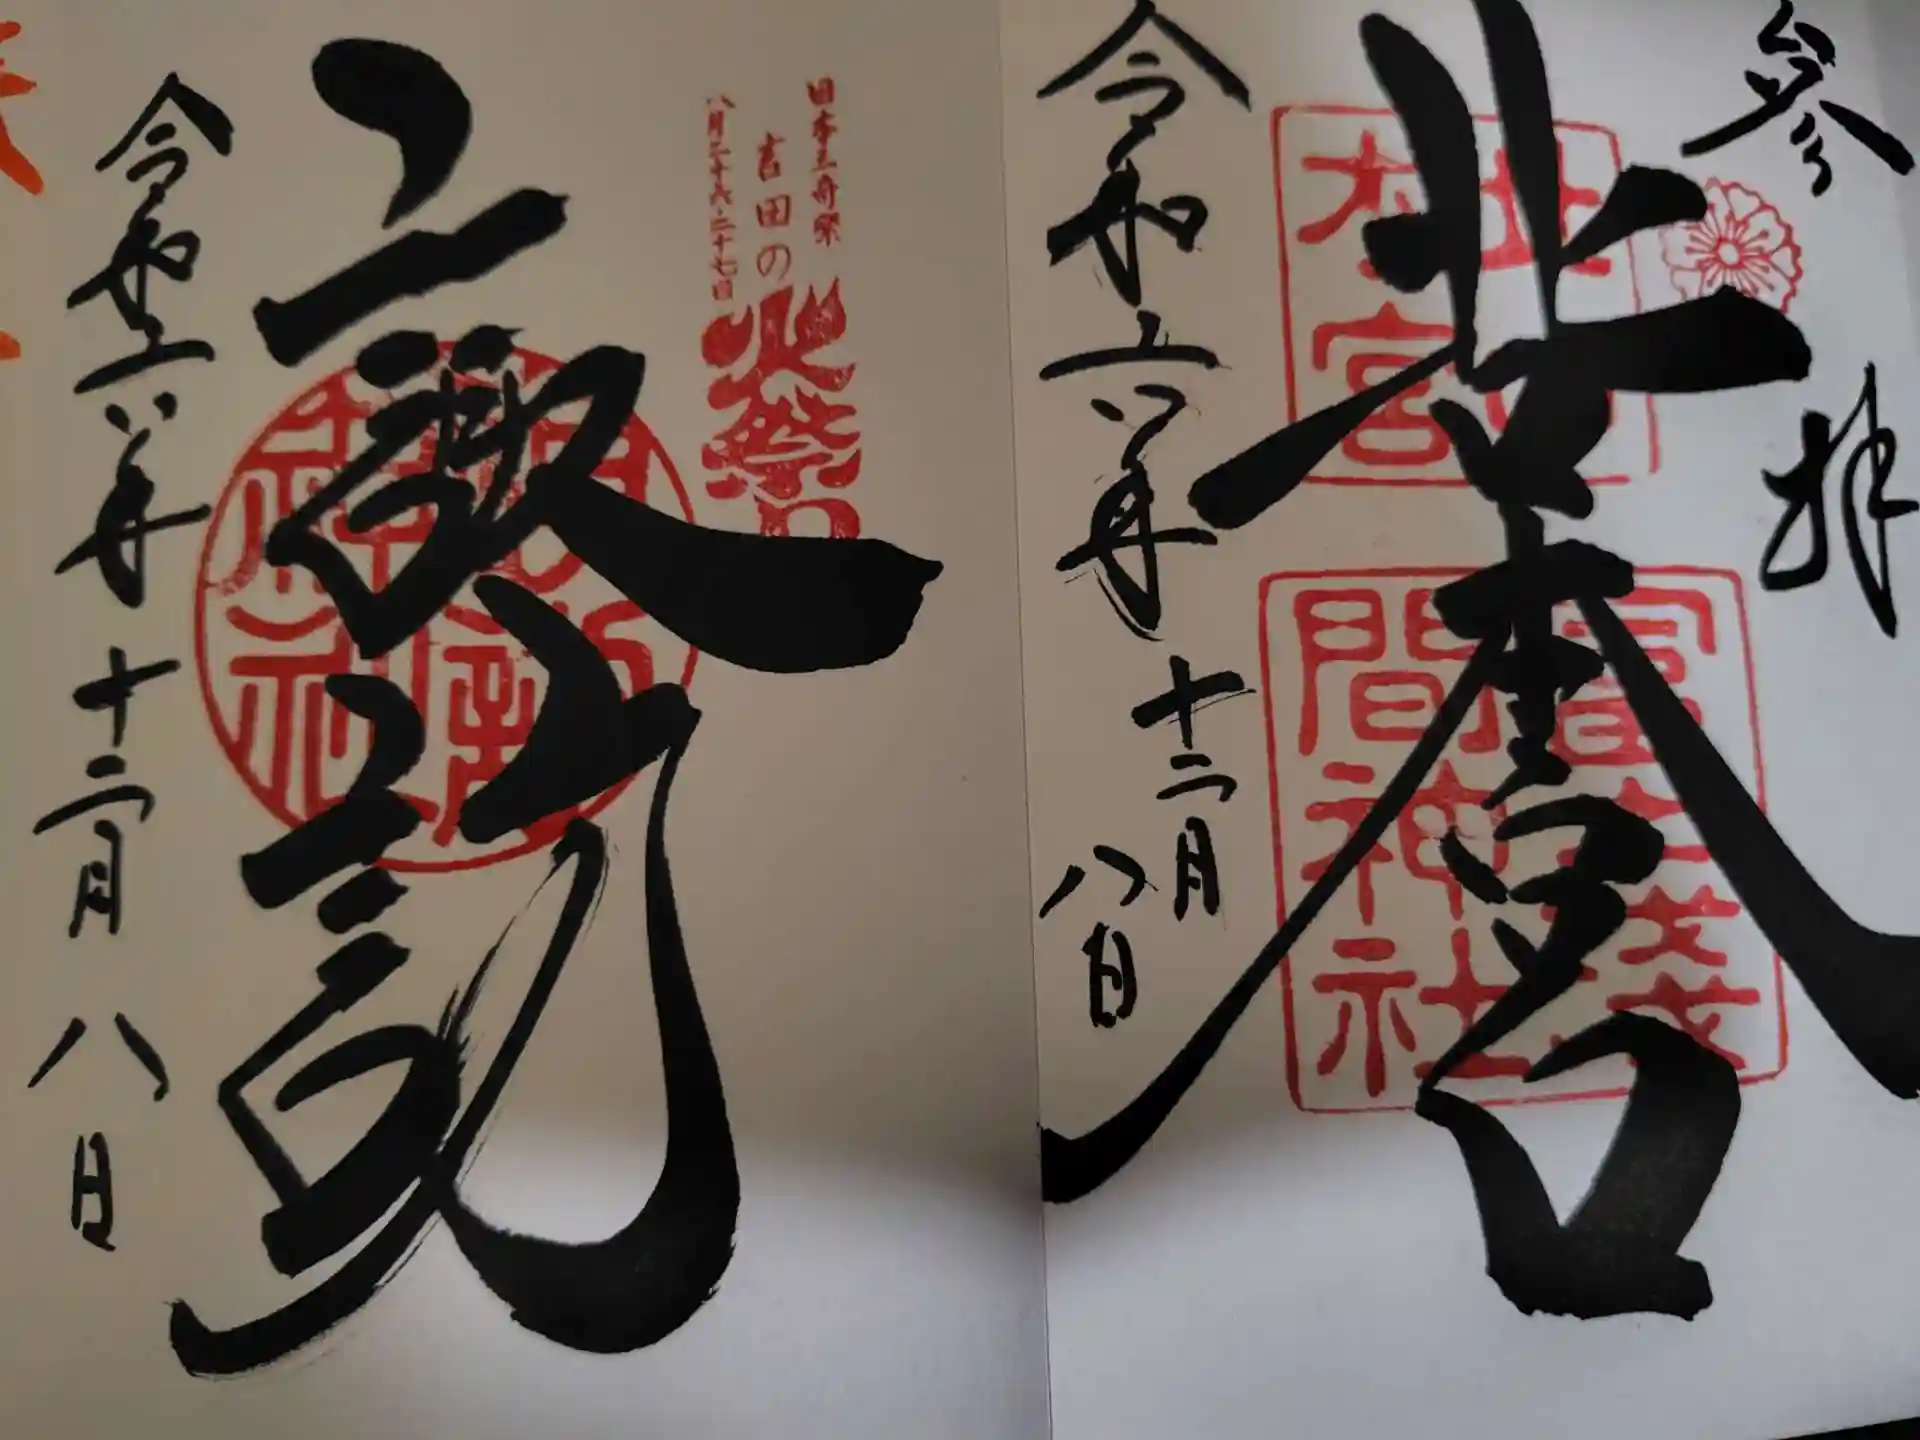 参拝
北口本宮
北口
本宮
冨士浅
間神社
令和六年十二月八日
日本三奇祭
吉田の火祭り
八月二十六・二十七日
諏訪
神社
令和六年十二月八日